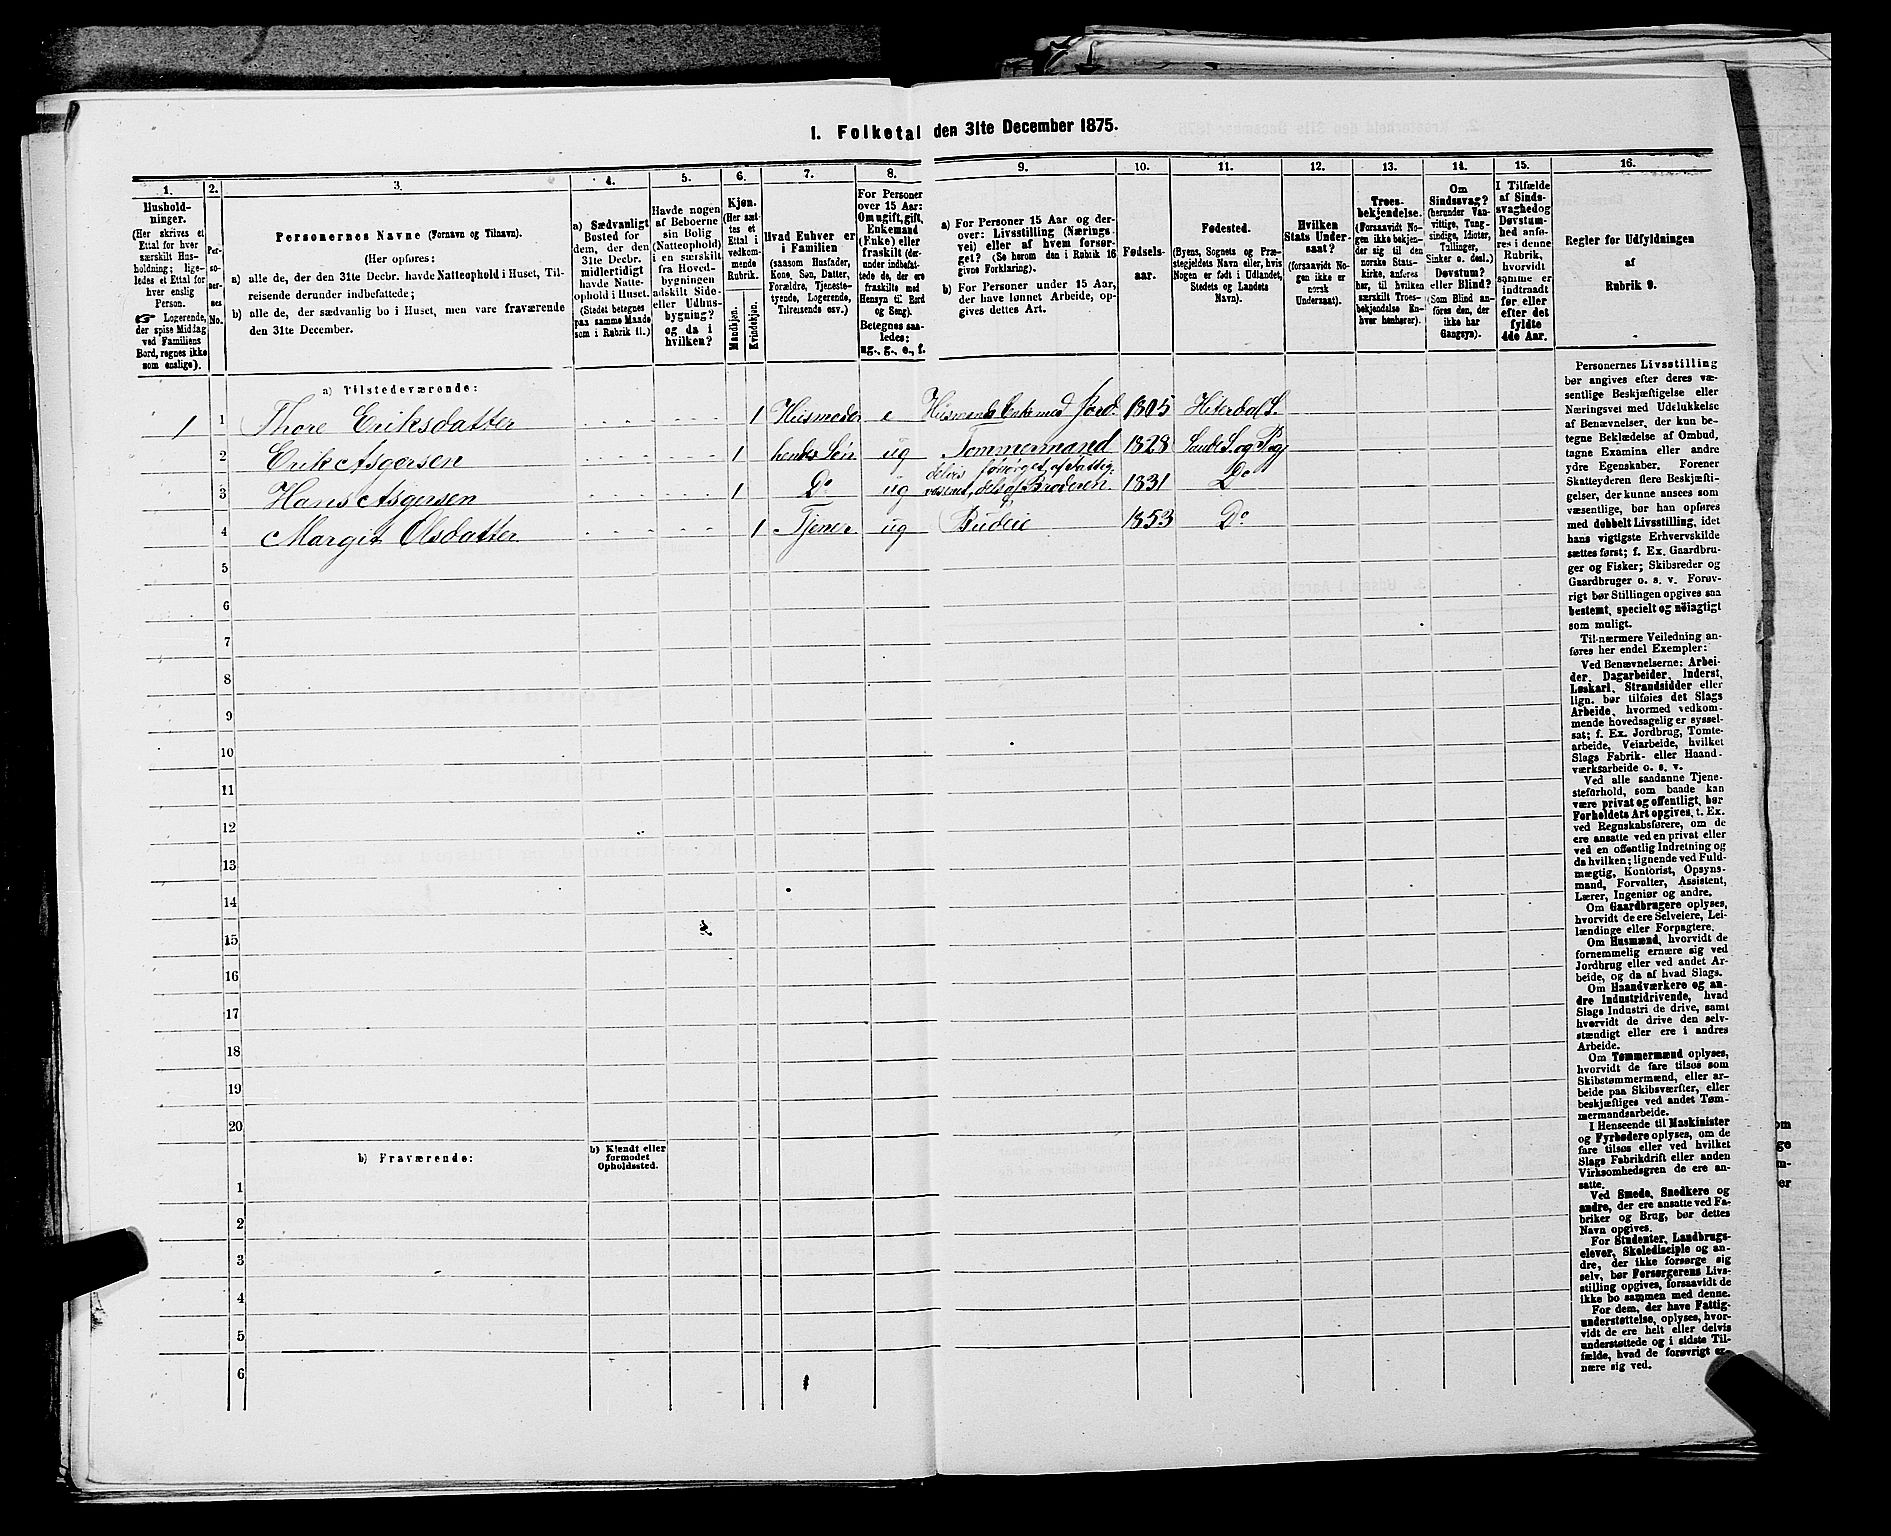 1. Folketal den 31te December 1875.
1.
Hushold-
ninger.
(Her skrives et
Ettal for hver
særskilt Hus-
holdning; lige-
ledes et Ettal for
hver enslig
Person.
☞ Logerende,
der spise Middag
ved Familiens
Bord, regnes ikke
som enslige).
2.
Per-
so-
ner-
nes
No.
3.
Personernes Navne (Fornavn og Tilnavn).
(Her opføres:
a) alle de, der den 31te Decbr. havde Natteophold i Huset, Til-
reisende derunder indbefattede;
b) alle de, der sædvanlig bo i Huset, men vare fraværende
den 31te December.
4.
a) Sædvanligt
Bosted for
dem, der den
31te Decbr.
midlertidigt
havde Natte-
ophold i Huset.
(Stedet betegnes
paa samme Maade
som i Rubrik 11.)
5.
Havde nogen
af Beboerne
sin Bolig
(Natteophold)
i en særskilt
fra Hoved-
bygningen
adskilt Side-
eller Udhus-
bygning?
og da i
hvilken?
6.
Kjøn.
(Her sæt-
tes et
Ettal i
vedkom-
mende
Rubrik.
Mandkjøn.
Kvindekjøn.
7.
Hvad Enhver er
i Familien
(saasom Husfader,
Kone, Søn, Datter,
Forældre, Tjeneste-
tyende, Logerende,
Tilreisende osv.)
8.
For Personer
over 15 Aar:
Om ugift, gift,
Enkemand
(Enke) eller
fraskilt (der-
under indbefat-
tede de, der ere
fraskilte med
Hensyn til Bord
og Seng).
Betegnes saa-
ledes:
ug., g., e., f.
9.
a) For Personer 15 Aar og der-
over: Livsstilling (Nærings-
vei) eller af hvem forsør-
get? (Se herom den i Rubrik 16
givne Forklaring).
b) For Personer under 15 Aar,
der have lønnet Arbeide, op-
gives dettes Art.
10.
Fødsels-
aar.
11.
Fødested.
(Byens, Sognets og Præ-
stegjeldets Navn eller, hvis
Nogen er født i Udlandet,
Stedets og Landets
Navn).
12.
Hvilken
Stats Under-
saat?
(forsaavidt No-
gen ikke er
norsk
Undersaat).
13.
Troes-
bekjendelse.
(Forsaavidt No-
gen ikke bekjen-
der sig til den
norske Stats-
kirke, anføres
her, til hvilken
særskilt Troes-
bekjendelse En-
hver henhører).
14.
Om
Sindssvag?
(herunder Van-
vittige, Tung-
sindige, Idioter,
Tullinger,
Sinker o. desl.)
Døvstum?
eller Blind?
(Som Blind an-
føres den, der
ikke har
Gangsyn).
15.
I Tilfælde
af Sinds-
svaghed og
Døvstum-
hed anfø-
res i denne
Rubrik,
hvorvidt
samme er
indtraadt
før eller
efter det
fyldte
4de Aar.
16.
Regler for Udfyldningen
af
Rubrik 9.
a) Tilstedeværende:
1 1 Thore Eriksdatter 1 Husmoder e Husmands Enke med Jord. 1805 Hiterdal S.
2 Erik Asgersen 1 hendes Søn ug Tømmermand 1828 Saude S. og Pgj
delvis forsørget af Fattig
3 Hans Asgersen 1 Do ug væsenet, dels af Broderen. 1831 Do
4 Margit Olsdatter 1 Tjener ug Budeie 1853 Do
5
6
7
8
9
10
11
12
13
14
15
16
17
18
19
20
b) Fraværende:
b) Kjendt eller
formodet
Opholdssted.
1
2
3
4
5
6
Personernes Livsstilling
bør angives efter deres væ-
sentlige Beskjæftigelse eller
Næringsvei med Udelukkelse
af Benævnelser, der kun be-
tegne Beklædelse af Ombud,
tagne Examina eller andre
ydre Egenskaber. Forener
Skatteyderen flere Beskjæfti-
gelser, der kunne ansees som
væsentlige, bør han opføres
med dobbelt Livsstilling, idet
hans vigtigste Erhvervskilde
sættes først; f. Ex. Gaardbru-
ger og Fisker; Skibsreder og
Gaardbruger o. s. v. Forøv-
rigt bør Stillingen opgives saa
bestemt, specielt og nøiagtigt
som muligt.
Til nærmere Veiledning an-
føres her endel Exempler:
Ved Benævnelserne: Arbei-
der, Dagarbeider, Inderst,
Løskarl, Strandsidder eller
lign. bør tilføies det Slags
Arbeide, hvormed vedkom-
mende hovedsagelig er syssel-
sat; f. Ex. Jordbrug, Tomte-
arbeide, Veiarbeide, hvilket
Slags Fabrik- eller Haand-
værksarbeide o. s. v.
Ved alle saadanne Tjene-
steforhold, som baade kan
være privat og offentligt, bør
Forholdets Art opgives, t. Ex.
ved Regnskabsførere, om de
ere ansatte ved en privat eller
ved en offentlig Indretning og
da hvilken; lignende ved Fuld-
mægtig, Kontorist, Opsyns-
mand, Forvalter, Assistent,
Lærer, Ingeniør og andre.
Om Gaardbrugere oplyses,
hvorvidt de ere Selveiere, Lei-
lændinge eller Forpagtere.
Om Husmænd, hvorvidt de
fornemmelig ernære sig ved
Jordbrug eller ved andet Ar-
beide, og da af hvad Slags.
Om Haandværkere og an-
dre Industridrivende, hvad
Slags Industri de drive, samt
hvorvidt de drive den selv-
stændigt eller ere i andres
Arbeide.
Om Tømmermænd oplyses,
hvorvidt de fare tilsøs som
Skibstømmermænd, eller ar-
beide paa Skibsværfter, eller
beskjæftiges ved andet Tøm-
mermandsarbeide.
I Henseende til Maskinister
og Fyrbødere oplyses, om de
fare tilsøs eller ved hvilket
Slags Fabrikdrift eller anden
Virksomhedsgren de ere an-
satte.
Ved Smede, Snedkere og
andre, der ere ansatte ved Fa-
briker og Brug, bør dettes
Navn opgives.
For Studenter, Landbrugs-
elever, Skoledisciple og an-
dre, der ikke forsørge sig
selv, bør Forsørgerens Livs-
stilling opgives, forsaavidt de
ikke bo sammen med denne.
For dem, der have Fattig-
understøttelse, oplyses, hvor-
vidt de ere helt eller delvis
understøttede og i sidste Til-
fælde, hvad de forøvrigt er-
nære sig ved.